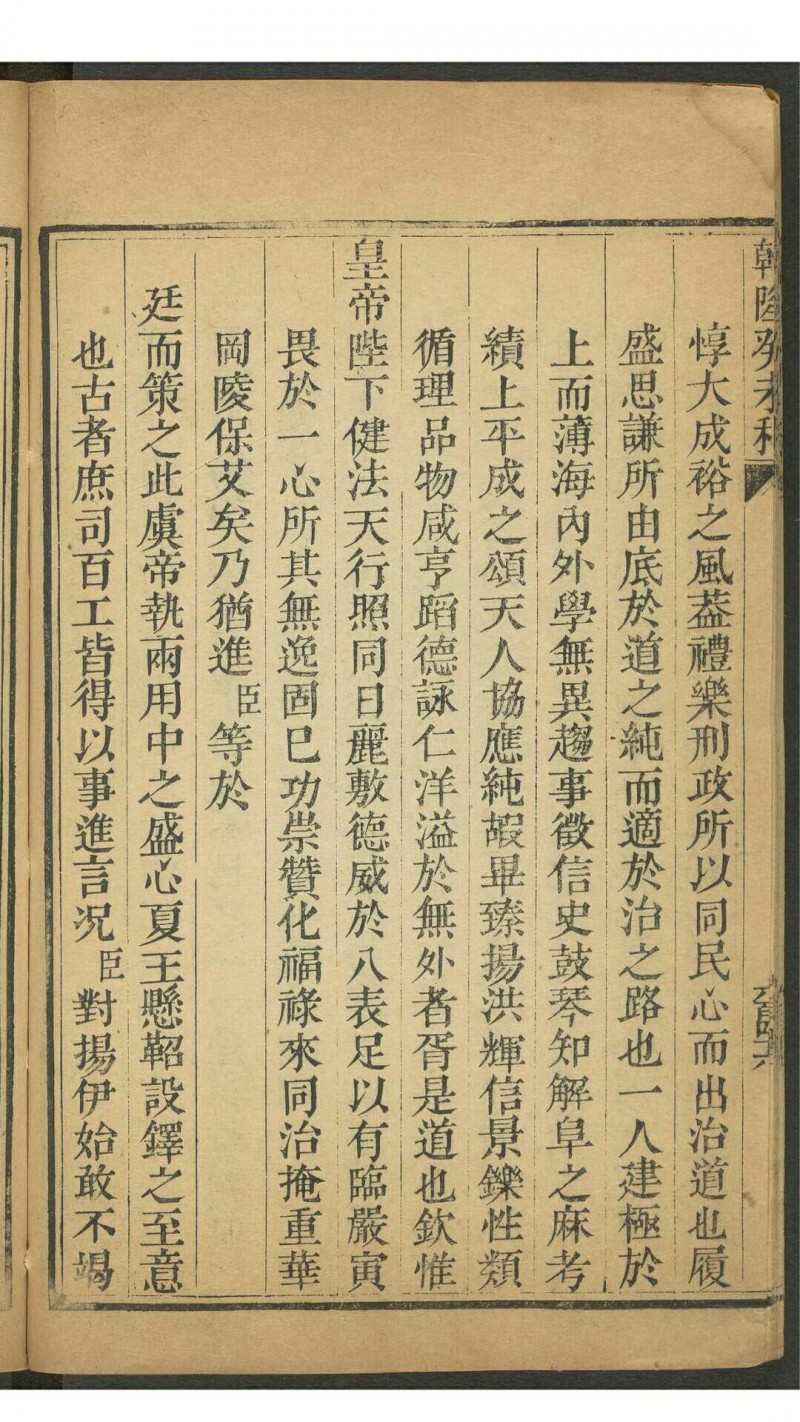 惇大成裕之風葢禮樂刑政所以同民心而出治道也履
盛思謙所由底於道之純而適於治之路也一人建極於
上而薄海內外學無異趨事徵信史鼓琴知解阜之麻考
績上平成之頌天人協應純嘏畢臻揚洪輝信景鑠性類
循理品物咸亨蹈德詠仁洋溢於無外者胥是道也欽惟
皇帝陛下健法天行照同日麗敷德威於八表足以有臨嚴寅
畏於一心所其無逸固巳功崇贊化福祿來同治掩重華
岡陵保艾矣乃猶進臣等於
廷而策之此虞帝執兩用中之盛心夏王懸鞀設鐸之至意
也古者庶司百工皆得以事進言况臣對揚伊始敢不竭